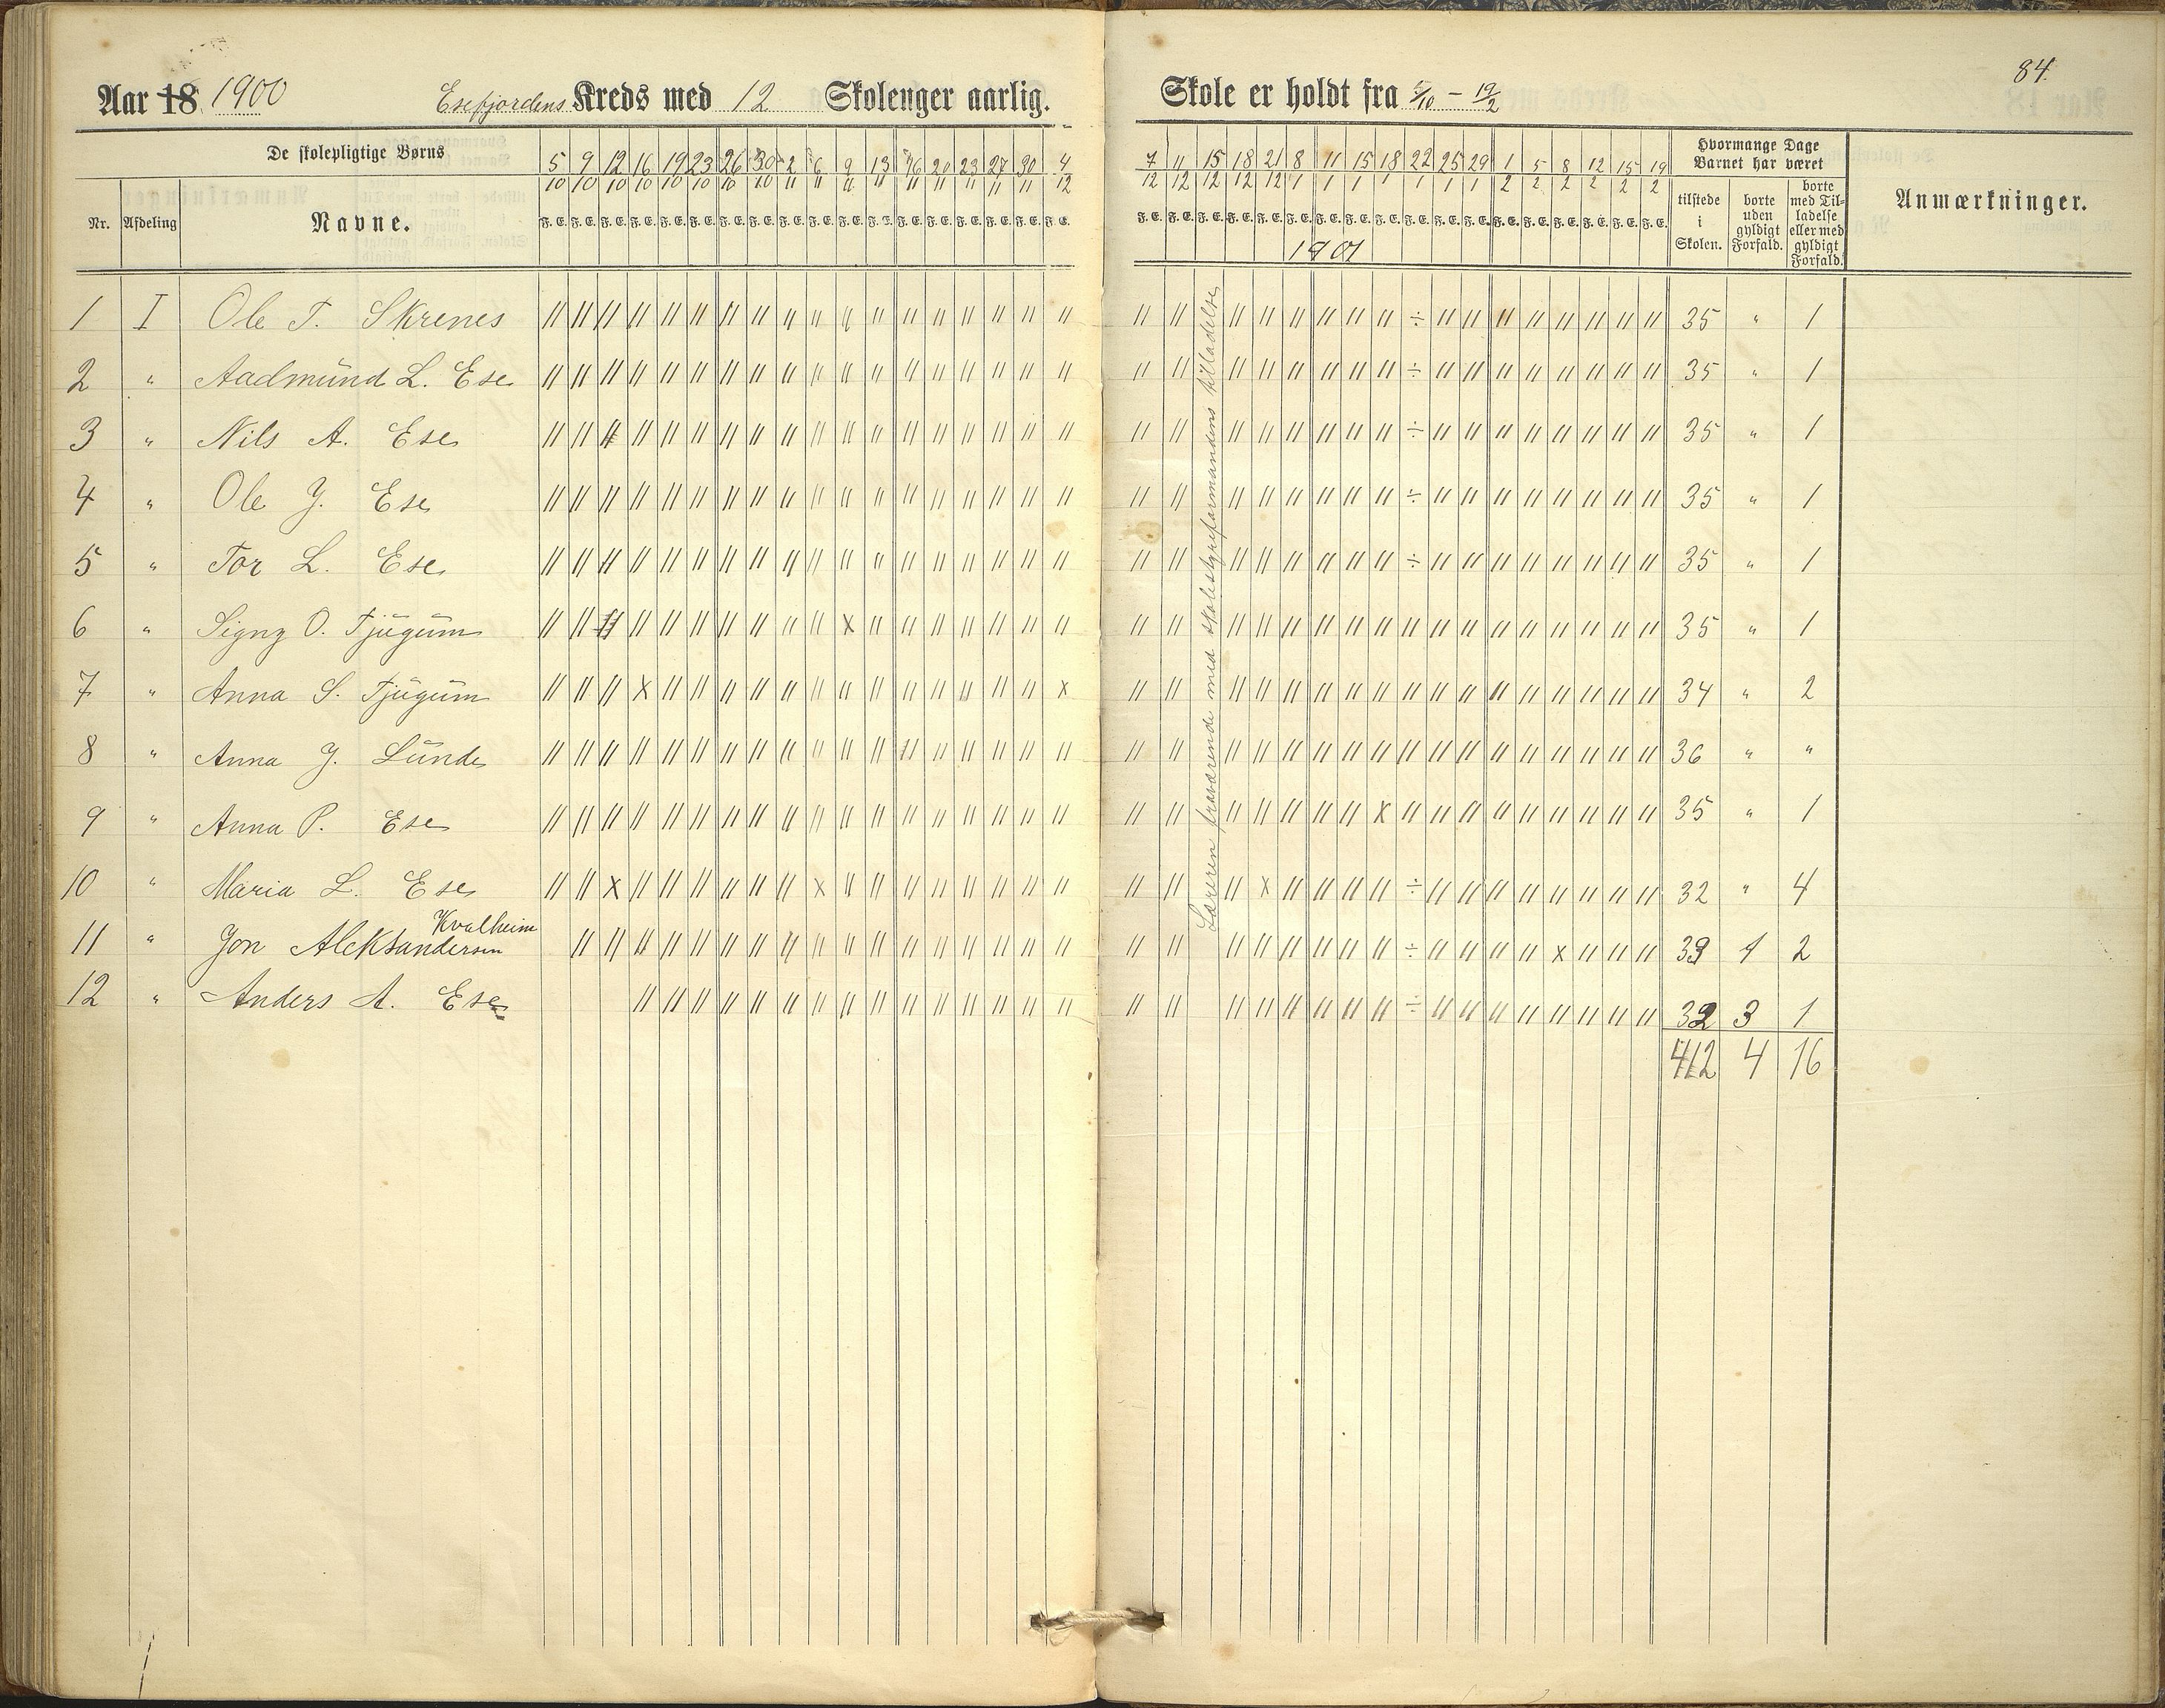 Aar 18 1900 Esefjordens Kreds med 12 Skolenger aarlig. Skole er holdt fra 5/10 - 19/2
84.
De skolepligtige Børns
Nr. Afdeling Navne.
5/10 9/10 12/10 16/10 19/10 23/10 26/10 30/10 2/11 6/11 9/11 13/11 16/11 20/11 23/11 27/11 30/11 4/12
7/12 11/12 15/12 18/12 21/12 8/1 11/1 15/1 18/1 22/1 25/1 29/1 1/2 5/2 8/2 12/2 15/2 19/2
F. E. F. E. F. E. F. E. F. E. F. E. F. E. F. E. F. E. F. E. F. E. F. E. F. E. F. E. F. E. F. E. F. E. F. E.
F. E. F. E. F. E. F. E. F. E. F. E. F. E. F. E. F. E. F. E. F. E. F. E. F. E. F. E. F. E. F. E. F. E. F. E.
1901
Hvormange Dage Barnet har været
tilstede i Skolen.
borte uden gyldigt Forfald.
borte med Tilladelse eller med gyldigt Forfald.
Anmærkninger.
Læreren fraværende med skolestyreformandens tilladelse
1 I Ole T. Skrenes 35 " 1
2 " Aadmund L. Ese 35 " 1
3 " Nils A. Ese 35 " 1
4 " Ole J. Ese 35 " 1
5 " Tor L. Ese 35 " 1
6 " Signy O. Tjugum 35 " 1
7 " Anna S. Tjugum 34 " 2
8 " Anna J. Lunde 36 " "
9 " Anna P. Ese 35 " 1
10 " Maria L. Ese 32 " 4
11 " Jon Aleksandersen Kvalheim 33 1 2
12 " Anders A. Ese 32 3 1
412 4 16